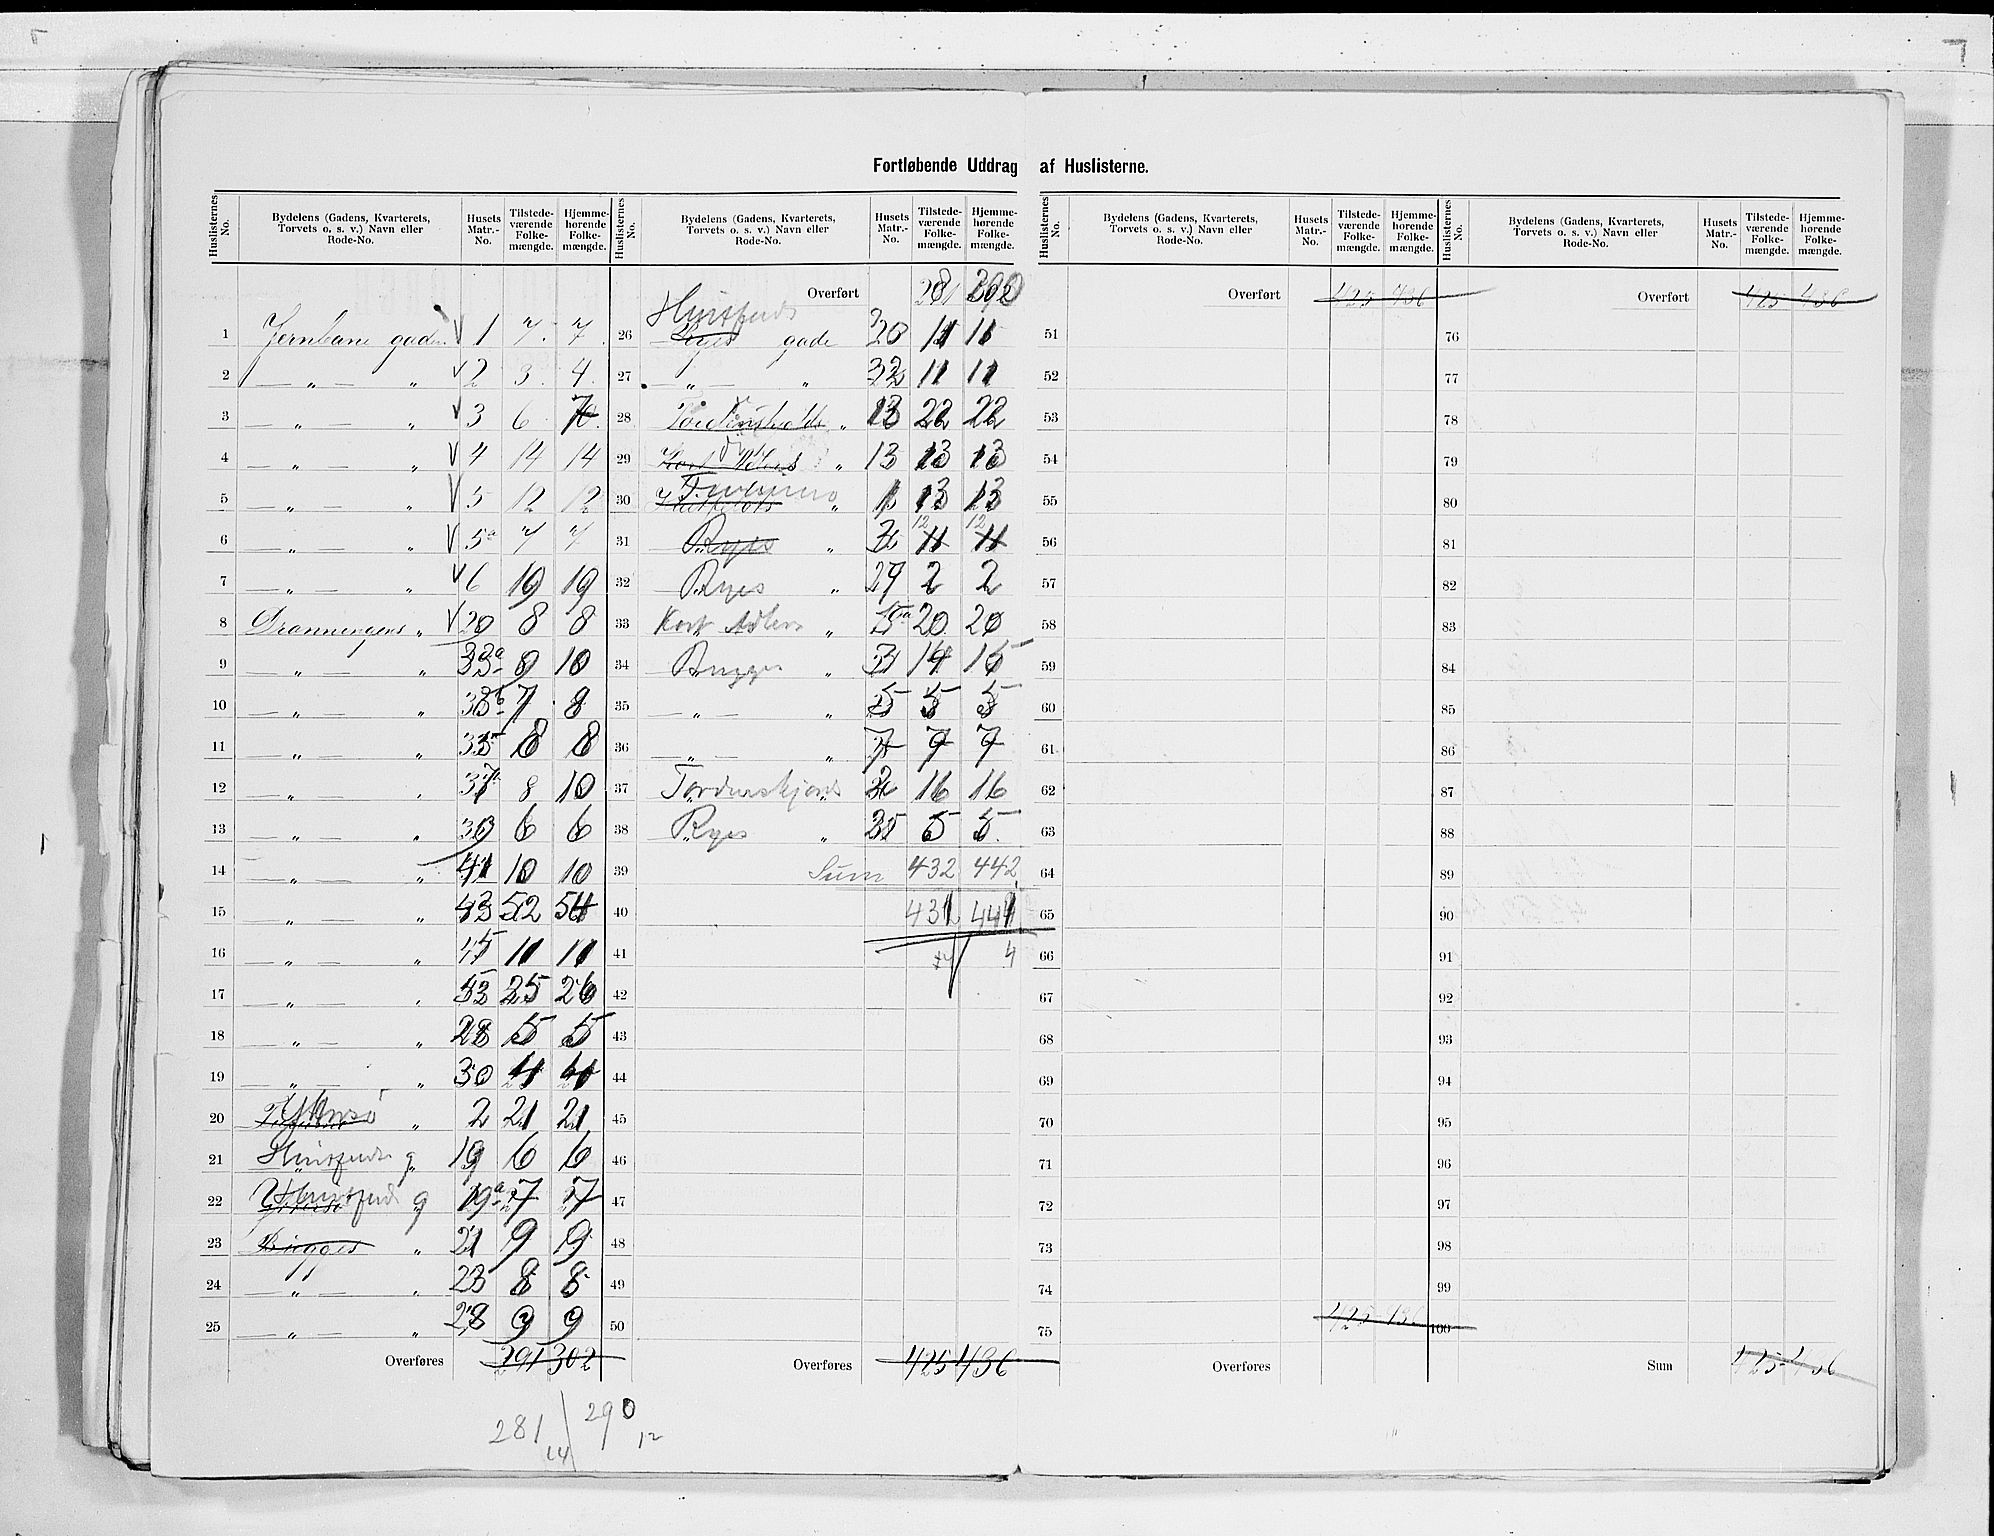 Fortløbende Uddrag af Huslisterne.
Huslisternes No. Bydelens (Gadens, Kvarterets, Torvets o. s. v.) Navn eller Rode-No. Husets Matr.-No. Tilstede-værende Folke-mængde. Hjemme-hørende Folke-mængde.
1 Jernbane gaden 1 7 7
2 — „ — „ 2 3 4
3 — „ — „ 3 6
4 — „ — „ 4 14 14
5 — „ — „ 5 12 12
6 — „ — „ 5a 7 7
7 — „ — „ 6 19 19
8 Dronningens „ 20 8 8
9 — „ — „ 33a 9 10
10 — „ — „ 33b 7 8
11 — „ — „ 35 8 8
12 — „ — „ 37a 8 10
13 — „ — „ 39 6 6
14 — „ — „ 41 10 10
15 — „ — „ 43 52 54
16 — „ — „ 45 11 11
17 — „ — „ 53 25 26
18 — „ — „ 28 5 5
19 — „ — „ 30 4 4
20 „ 2 21 21
21 Huitfeldts g 19 6 6
22 Huitfeldts g 19a 7 7
23 Brygges „ 21 9 9
24 — „ — „ 23 8 8
25 — „ — „ 28 9 9
Overføres 291 302
281 290
14 12
Huslisternes No. Bydelens (Gadens, Kvarterets, Torvets o. s. v.) Navn eller Rode-No. Husets Matr.-No. Tilstede-værende Folke-mængde. Hjemme-hørende Folke-mængde.
Overført 281 290
Huitfeldts
26 Ryes gade 20 11 11
27 — „ — „ 32 11 11
28 Tordenskjolds „ 13 22 22
29 Kort Adlers „ 13 13 13
30 Huitfeldts „ 1 13 13
12 12
31 Ryes „ 3 11 11
32 Ryes „ 29 2 2
33 Kort Adlers „ 5a 20 20
34 Brygges „ 3 14 15
35 — „ — „ 5 5 5
36 — „ — „ 7 9 9
37 Tordenskjolds „ 2 16 16
38 Ryes „ 35 5 5
39 Sum 432 442
40 431 441
41 4
42
43
44
45
46
47
48
49
50
Overføres 425 436
Huslisternes No. Bydelens (Gadens, Kvarterets, Torvets o. s. v.) Navn eller Rode-No. Husets Matr.-No. Tilstede-værende Folke-mængde. Hjemme-hørende Folke-mængde.
Overført 425 436
51
52
53
54
55
56
57
58
59
60
61
62
63
64
65
66
67
68
69
70
71
72
73
74
75 425 436
Overføres
Huslisternes No. Bydelens (Gadens, Kvarterets, Torvets o. s. v.) Navn eller Rode-No. Husets Matr.-No. Tilstede-værende Folke-mængde. Hjemme-hørende Folke-mængde.
Overført 425 436
76
77
78
79
80
81
82
83
84
85
86
87
88
89
90
91
92
93
94
95
96
97
98
99
100
Sum 425 436